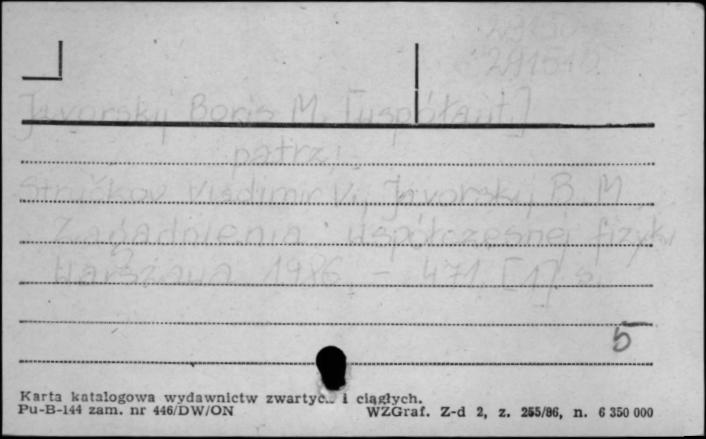 291510
Javorskij Boris M. [współaut.]
patrz:
Stručkov Vladimir V., Javorskij B. M.
Zagadnienia współczesnej fizyki
Warszawa 1986. – 471, [1] s.
5
Karta katalogowa wydawnictw zwartyc.. i ciągłych.
Pu-B-144 zam. nr 446/DW/ON WZGraf. Z-d 2, z. 255/86, n. 6 350 000